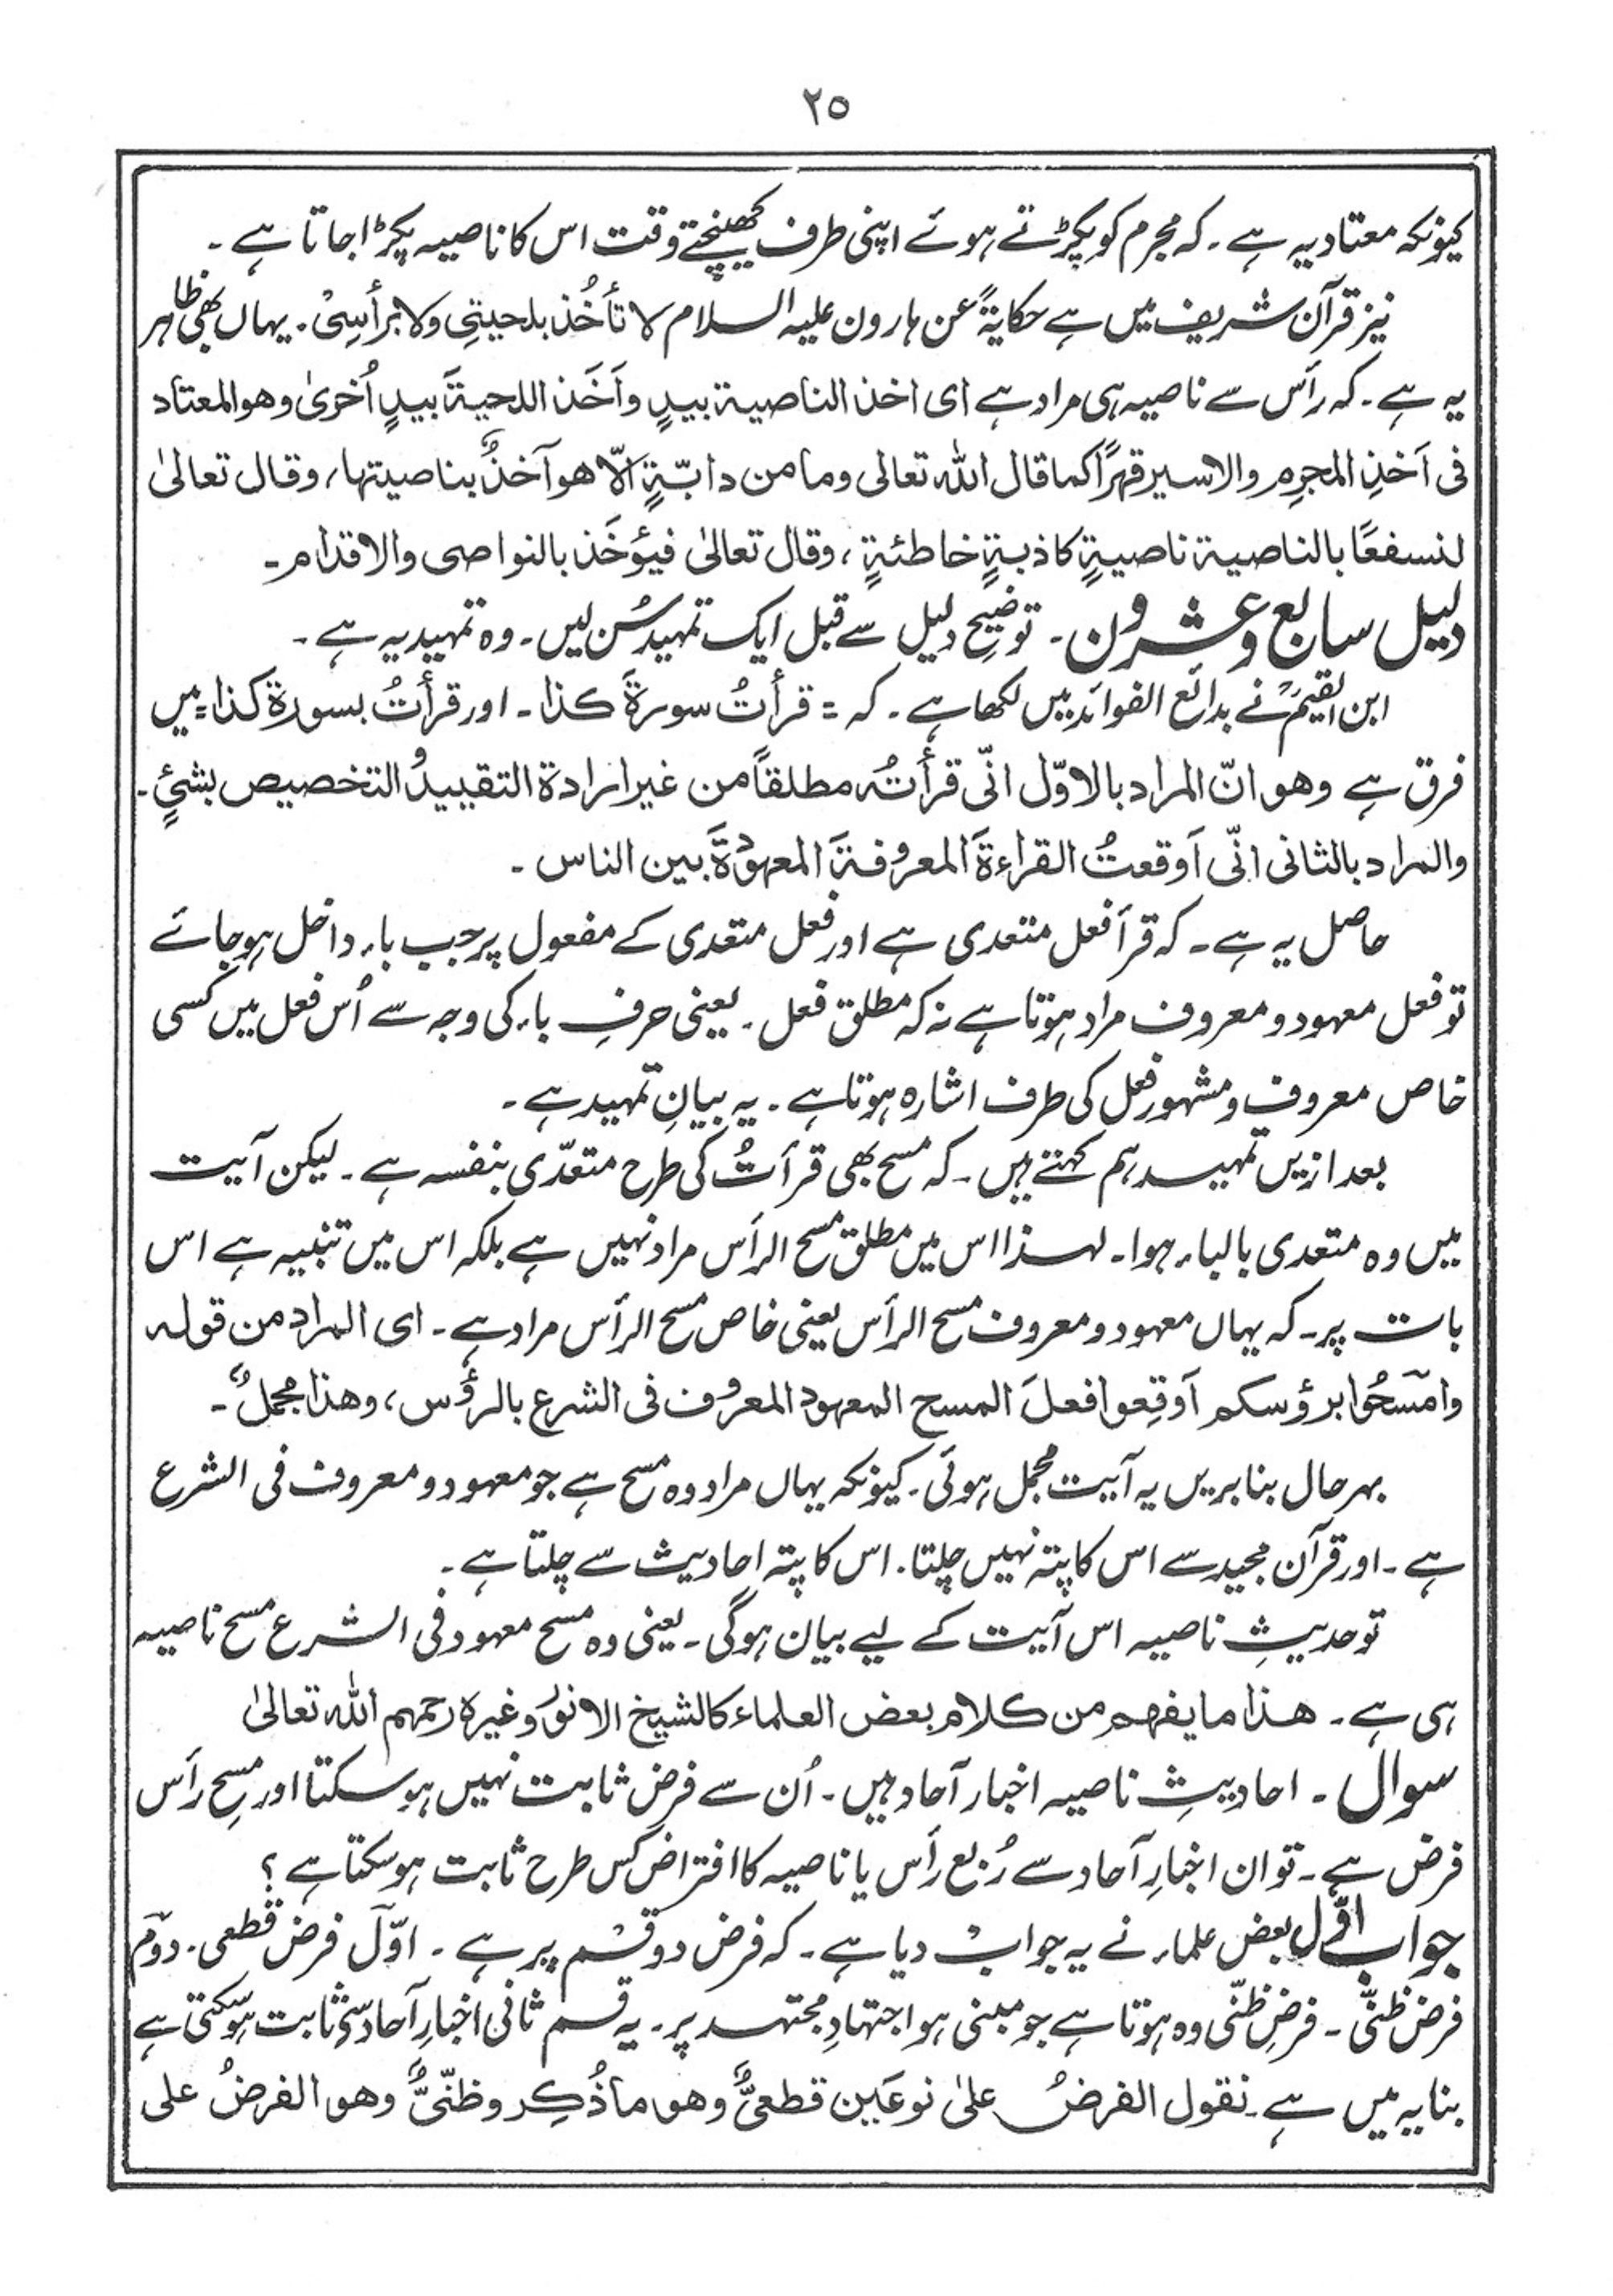 ۲۵
کیونکہ معتاد یہ ہے۔ کہ مجرم کو پکڑتے ہوئے اپنی طرف کھینچتے وقت اس کا ناصیہ پکڑا جاتا ہے۔
نیز قرآن شریف میں ہے حکایۃً عن ہارون علیہ السلام لا تأخُذ بلحیتِی ولا برأسِیْ۔ یہاں بھی ظاہر
یہ ہے۔ کہ رأس سے ناصیہ ہی مراد ہے ای اخذ الناصیۃ بیدٍ واَخَذ اللحیۃَ بیدٍ اُخریٰ وھو المعتاد
فی اَخذِ المجرِم والاسیر قھرًا کما قال اللہ تعالی وما من دابّۃٍ الّا ھو آخذٌ بناصیتھا، وقال تعالیٰ
لنسفعًا بالناصیۃ ناصیۃٍ کاذبۃٍ خاطئۃٍ، وقال تعالیٰ فیؤخَذ بالنواصی والاقدام۔
دلیل سابع وعشرون۔ توضیحِ دلیل سے قبل ایک تمہید سُن لیں۔ وہ تمہید یہ ہے۔
ابن القیمؒ نے بدائع الفوائد میں لکھا ہے۔ کہ = قرأتُ سورۃَ کذا۔ اور قرأتُ بسورۃ کذا = میں
فرق ہے وھو انّ المراد بالاوّل انّی قرأتُہ مطلقاً من غیر ارادۃ التقیید والتخصیص بشئٍ۔
والمراد بالثانی انّی اَوقعتُ القراءۃَ المعروفۃَ المعہودۃَ بین الناس۔
حاصل یہ ہے۔ کہ قرأ فعل متعدی ہے اور فعل متعدی کے مفعول پر جب باء داخل ہو جائے
تو فعل معہود و معروف مراد ہوتا ہے نہ کہ مطلق فعل۔ یعنی حرفِ باء کی وجہ سے اُس فعل میں کسی
خاص معروف و مشہور فعل کی طرف اشارہ ہوتا ہے۔ یہ بیانِ تمہید ہے۔
بعد ازیں تمہید ہم کہتے ہیں۔ کہ مسح بھی قرأتُ کی طرح متعدّی بنفسہ ہے۔ لیکن آیت
میں وہ متعدی بالباء ہوا۔ لہذا اس میں مطلق مسح الرأس مراد نہیں ہے بلکہ اس میں تنبیہ ہے اس
بات پر۔ کہ یہاں معہود و معروف مسح الرأس یعنی خاص مسح الرأس مراد ہے۔ ای المراد من قولہ
وامسَحُوا برؤسکم اَوقِعوا فعلَ المسح المعہود المعروف فی الشرع بالرؤس، وھذا مجملٌ۔
بہر حال بنا بریں یہ آیت مجمل ہوئی۔ کیونکہ یہاں مراد وہ مسح ہے جو معہود و معروف فی الشرع
ہے۔ اور قرآن مجید سے اس کا پتہ نہیں چلتا۔ اس کا پتہ احادیث سے چلتا ہے۔
تو حدیثِ ناصیہ اس آیت کے لیے بیان ہوگی۔ یعنی وہ مسح معہود فی الشرع مسح ناصیہ
ہی ہے۔ ھذا ما یفھم من کلام بعض العلماء کالشیخ الانورؒ وغیرہ رحمہم اللہ تعالیٰ
سوال۔ احادیثِ ناصیہ اخبار آحاد ہیں۔ اُن سے فرض ثابت نہیں ہو سکتا اور مسحِ رأس
فرض ہے۔ تو ان اخبارِ آحاد سے رُبع رأس یا ناصیہ کا افتراض کس طرح ثابت ہو سکتا ہے؟
جواب اوّل بعض علماء نے یہ جواب دیا ہے۔ کہ فرض دو قسم پر ہے۔ اوّل فرض قطعی۔ دوّم
فرض ظنّی۔ فرضِ ظنّی وہ ہوتا ہے جو مبنی ہو اجتہادِ مجتہد پر۔ یہ قسم ثانی اخبارِ آحاد سے ثابت ہو سکتی ہے
بنایہ میں ہے۔ نقول الفرضُ علیٰ نوعَین قطعیٌّ وھو ما ذُکِر وظنّیٌّ وھو الفرضُ علی